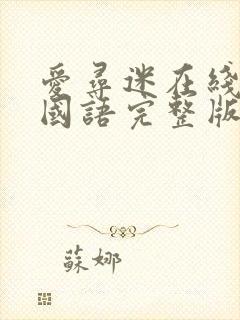 愛尋迷在綫
國語完整版
蘇娜